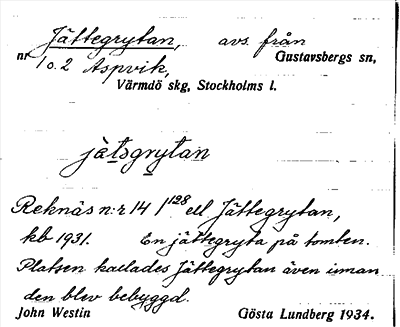 Jättegrytan, avs. från
nr 1 o. 2 Aspvik, Gustavsbergs sn,
Värmdö skg, Stockholms l.
jätsgrytan
Reknäs n:r 14 1/128 ell Jättegrytan,
kb 1931. En jättegryta på tomten.
Platsen kallades Jättegrytan även innan
den blev bebyggd.
John Westin Gösta Lundberg 1934.